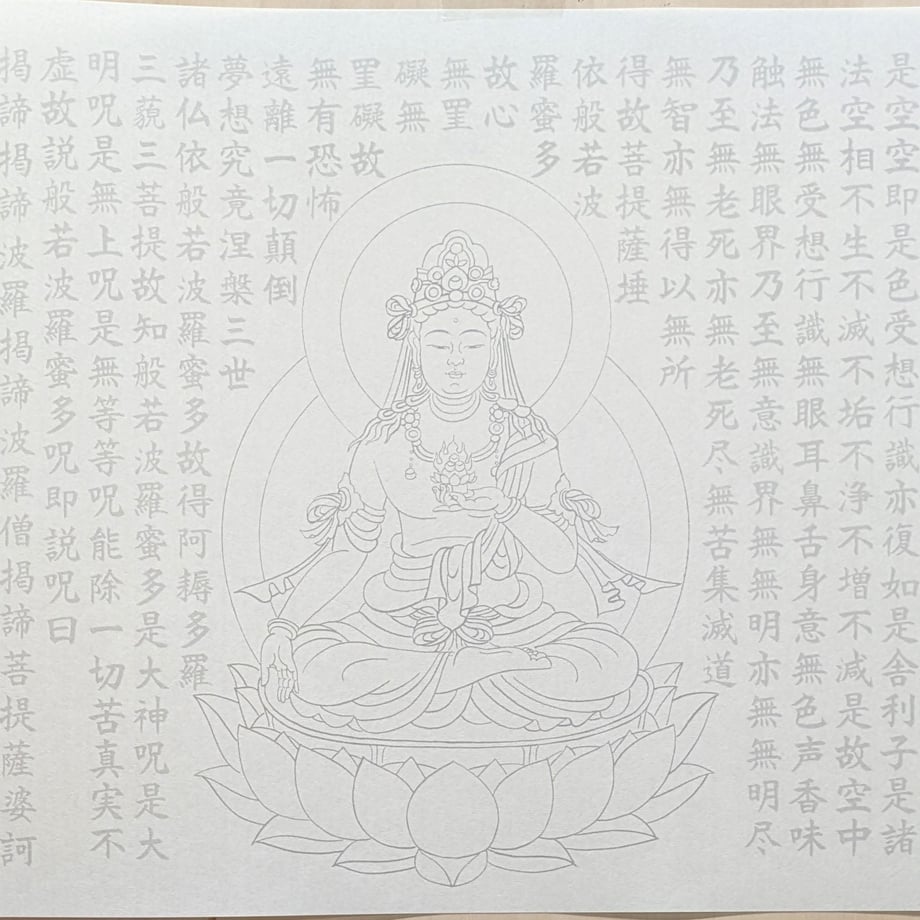 是空空即是色受想行識亦復如是舎利子是諸
法空相不生不滅不垢不浄不増不減是故空中
無色無受想行識無眼耳鼻舌身意無色声香味
触法無眼界乃至無意識界無無明亦無無明尽
乃至無老死亦無老死尽無苦集滅道
無智亦無得以無所
得故菩提薩埵
依般若波
羅蜜多
故心
無罣
礙無
罣礙故
無有恐怖
遠離一切顛倒
夢想究竟涅槃三世
諸仏依般若波羅蜜多故得阿耨多羅
三藐三菩提故知般若波羅蜜多是大神呪是大
明呪是無上呪是無等等呪能除一切苦真実不
虚故説般若波羅蜜多呪即説呪曰
掲諦掲諦波羅掲諦波羅僧掲諦菩提薩婆訶